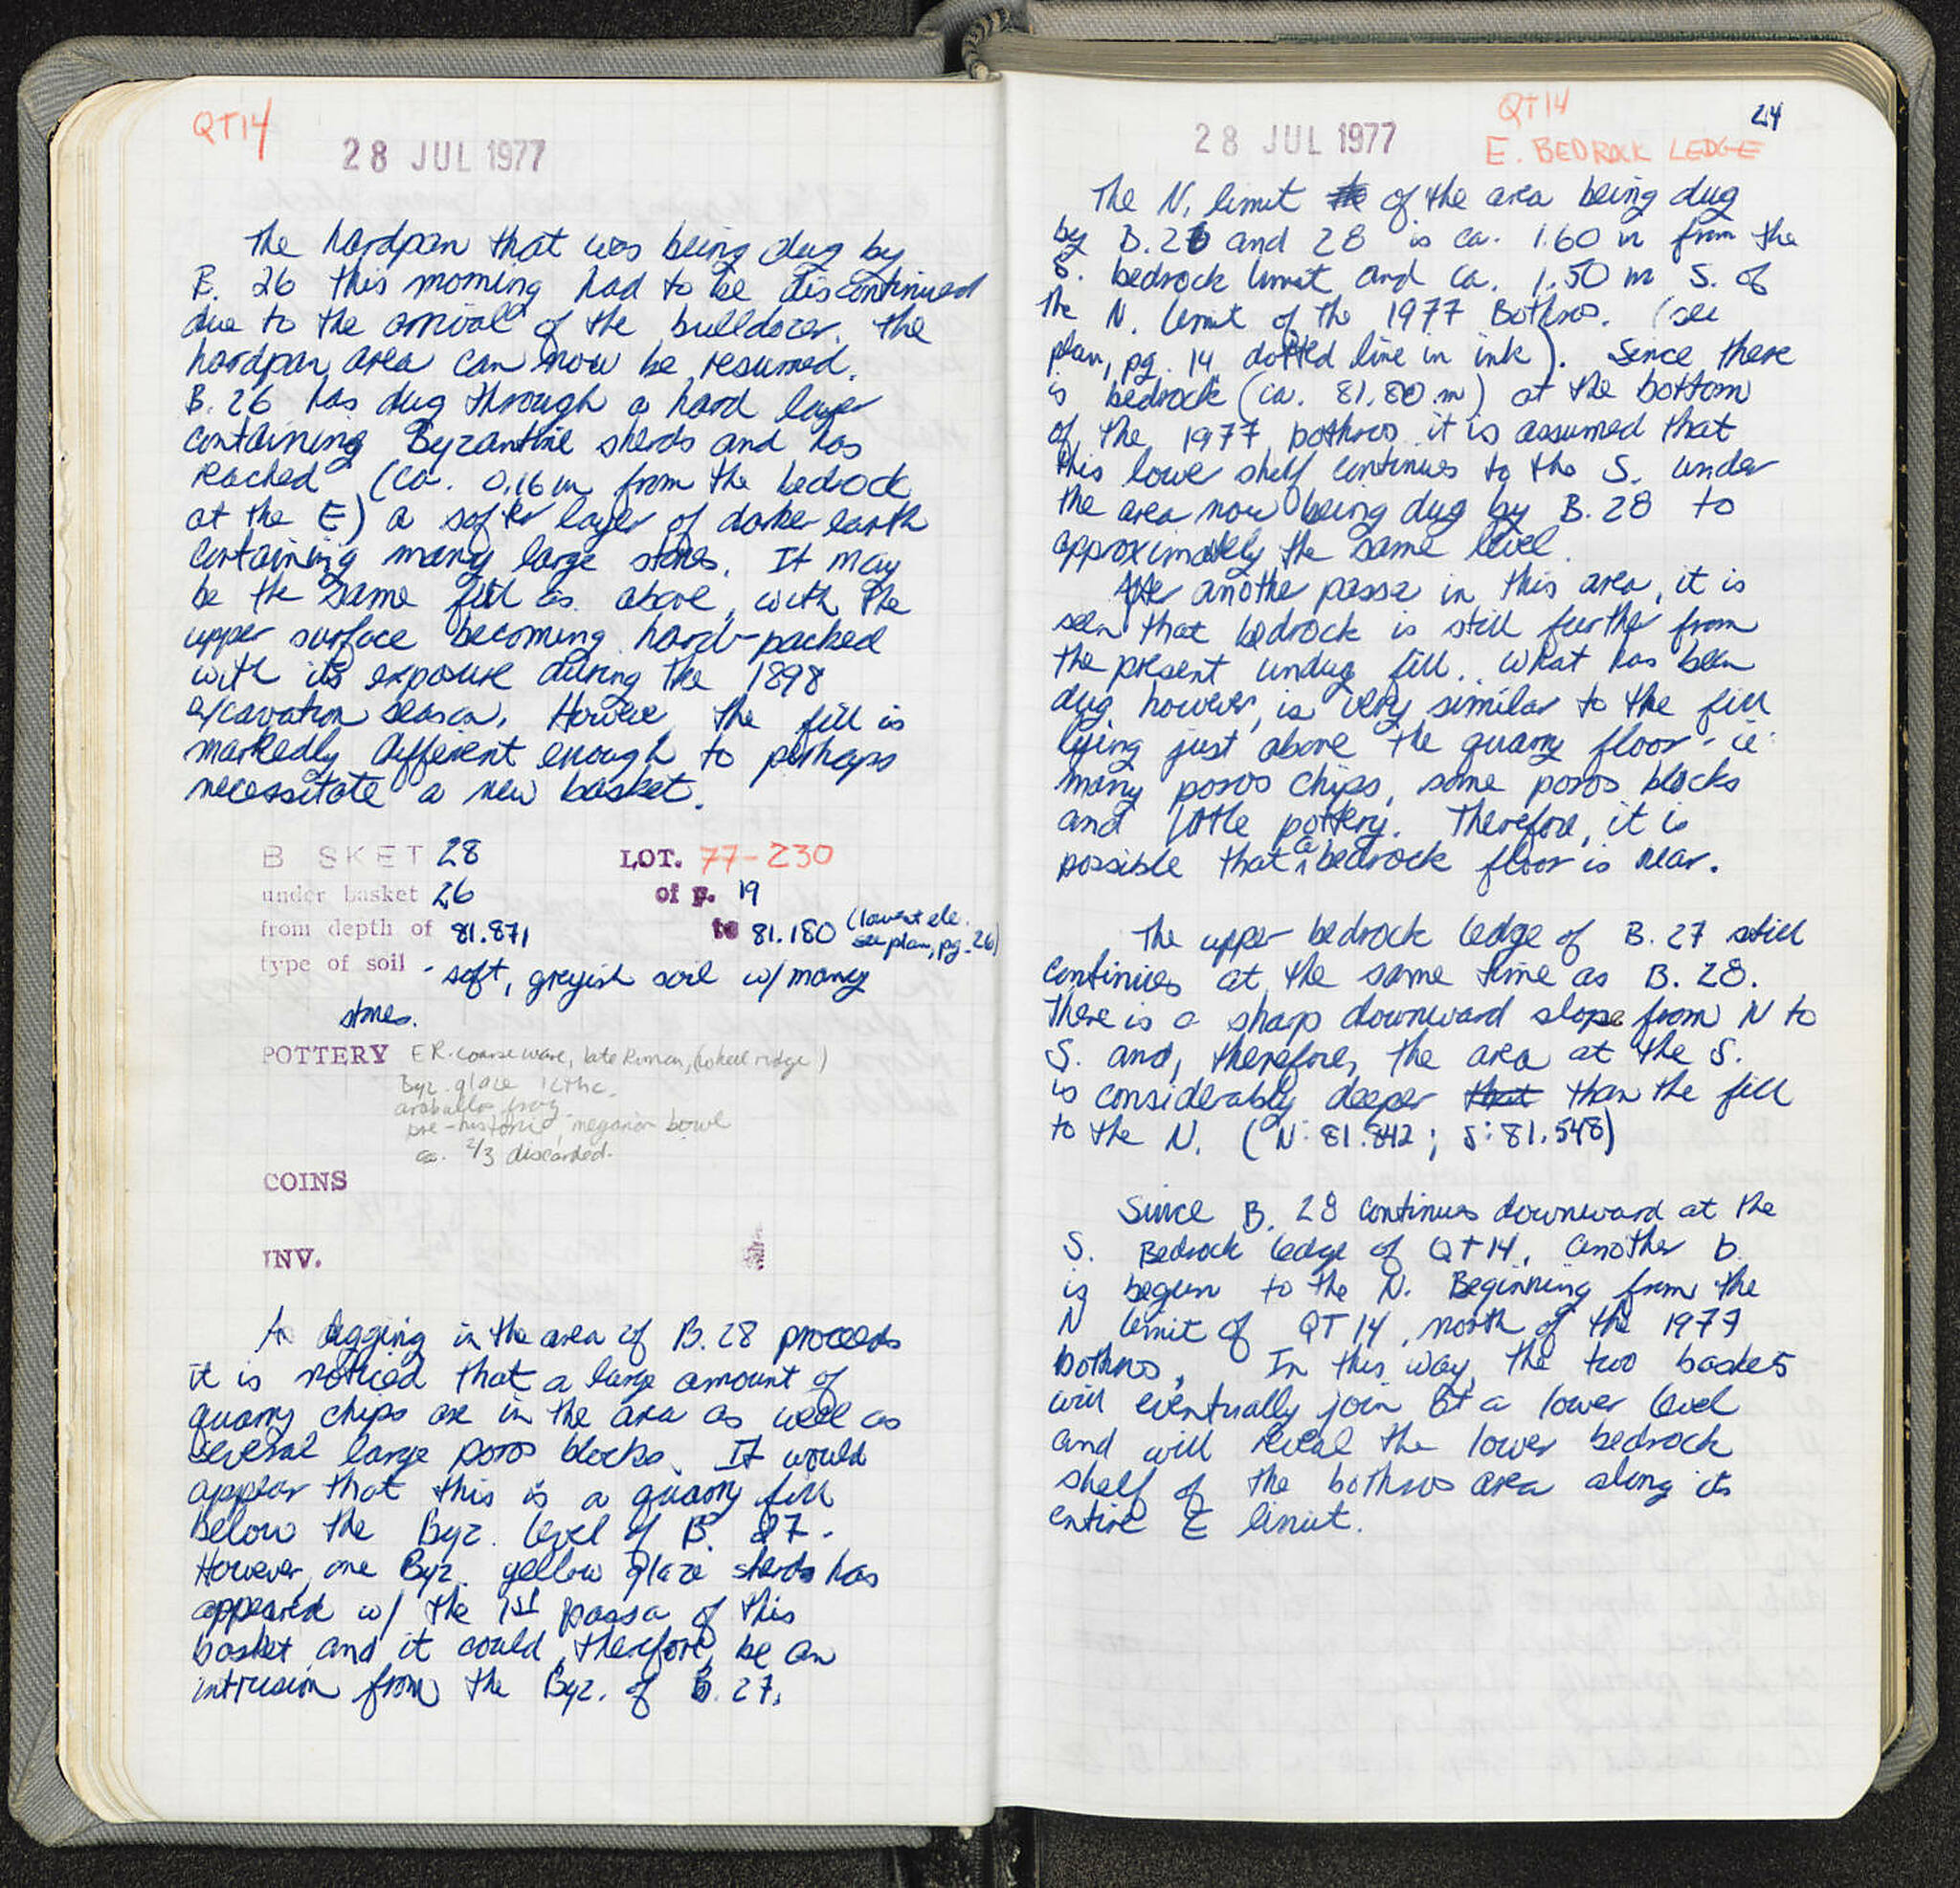 QT14
28 JUL 1977
The hardpan that was being dug by
B. 26 this morning had to be discontinued
due to the arrival of the bulldozer. The
hardpan area can now be resumed.
B. 26 has dug through a hard layer
containing Byzantine sherds and has
reached (ca. 0.16 m from the bedrock
at the E) a softer layer of darker earth
containing many large stones. It may
be the same fill as above, with the
upper surface becoming hard-packed
with its exposure during the 1898
excavation season. However the fill is
markedly different enough to perhaps
necessitate a new basket.
B SKET 28 LOT. 77-230
under basket 26 of p. 19
from depth of 81.871 to 81.180 (lowest ele.
see plan, pg. 26)
type of soil - soft, greyish soil w/ many
stones.
POTTERY E R. coarse ware, late Roman, (wheel ridge)
Byz. glaze 12thc.
aryballos frag.
pre-historic, megarian bowl
ca. 2/3 discarded.
COINS
INV.
As digging in the area of B. 28 proceeds
it is noticed that a large amount of
quarry chips are in the area as well as
several large poros blocks. It would
appear that this is a quarry fill
below the Byz. level of B. 27.
However, one Byz. yellow glaze sherds has
appeared w/ the 1st passa of this
basket and it could, therefore, be an
intrusion from the Byz. of B. 27.
28 JUL 1977
QT14
24
E. BEDROCK LEDGE
The N. limit of the area being dug
by B. 26 and 28 is ca. 1.60 m from the
S. bedrock limit and ca. 1.50 m S. of
the N. limit of the 1977 Bothros. (see
plan, pg. 14 dotted line in ink). Since there
is bedrock (ca. 81.80 m) at the bottom
of the 1977 bothros it is assumed that
this lower shelf continues to the S. under
the area now being dug by B. 28 to
approximately the same level.
After another passa in this area, it is
seen that bedrock is still further from
the present undug fill. What has been
dug, however, is very similar to the fill
lying just above the quarry floor - ie:
many poros chips, some poros blocks
and little pottery. Therefore, it is
possible that a bedrock floor is near.
The upper bedrock ledge of B. 27 still
continues at the same time as B. 28.
There is a sharp downward slope from N to
S. and, therefore, the area at the S.
is considerably deeper that than the fill
to the N. (N: 81.842; S: 81.548)
Since B. 28 continues downward at the
S. Bedrock ledge of QT14, another b.
is begun to the N. Beginning from the
N limit of QT14, north of the 1977
bothros, In this way, the two baskets
will eventually join at a lower level
and will reveal the lower bedrock
shelf of the bothros area along its
entire E limit.